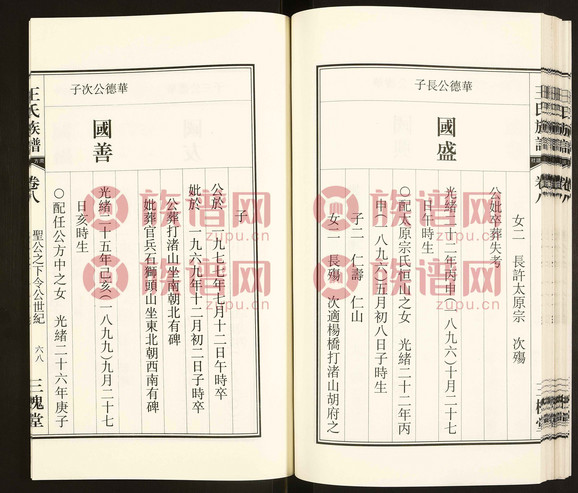 女二 長許太原宗 次殤
公妣卒葬失考
華德公長子
國盛
光緒二十二年丙申(一八九六)十月二十七
日午時生
○配太原宗氏恒山之女 光緒二十二年丙
申(一八九六)五月初八日子時生
子二 仁壽 仁山
女一 長殤 次適楊橋打渚山胡府之
子
公於一九七七年七月十二日午時卒
妣於一九六九年十二月初二日子時卒
公葬打渚山坐南朝北有碑
妣葬官兵石獅頭山坐東北朝西南有碑
華德公次子
國善
光緒二十五年己亥(一八九九)九月二十七
日亥時生
○配任公方中之女 光緒二十六年庚子
王氏族譜
卷八
聖公之下令公世紀
六八
三槐堂
族谱网
zupu.cn
族谱网
zupu.cn